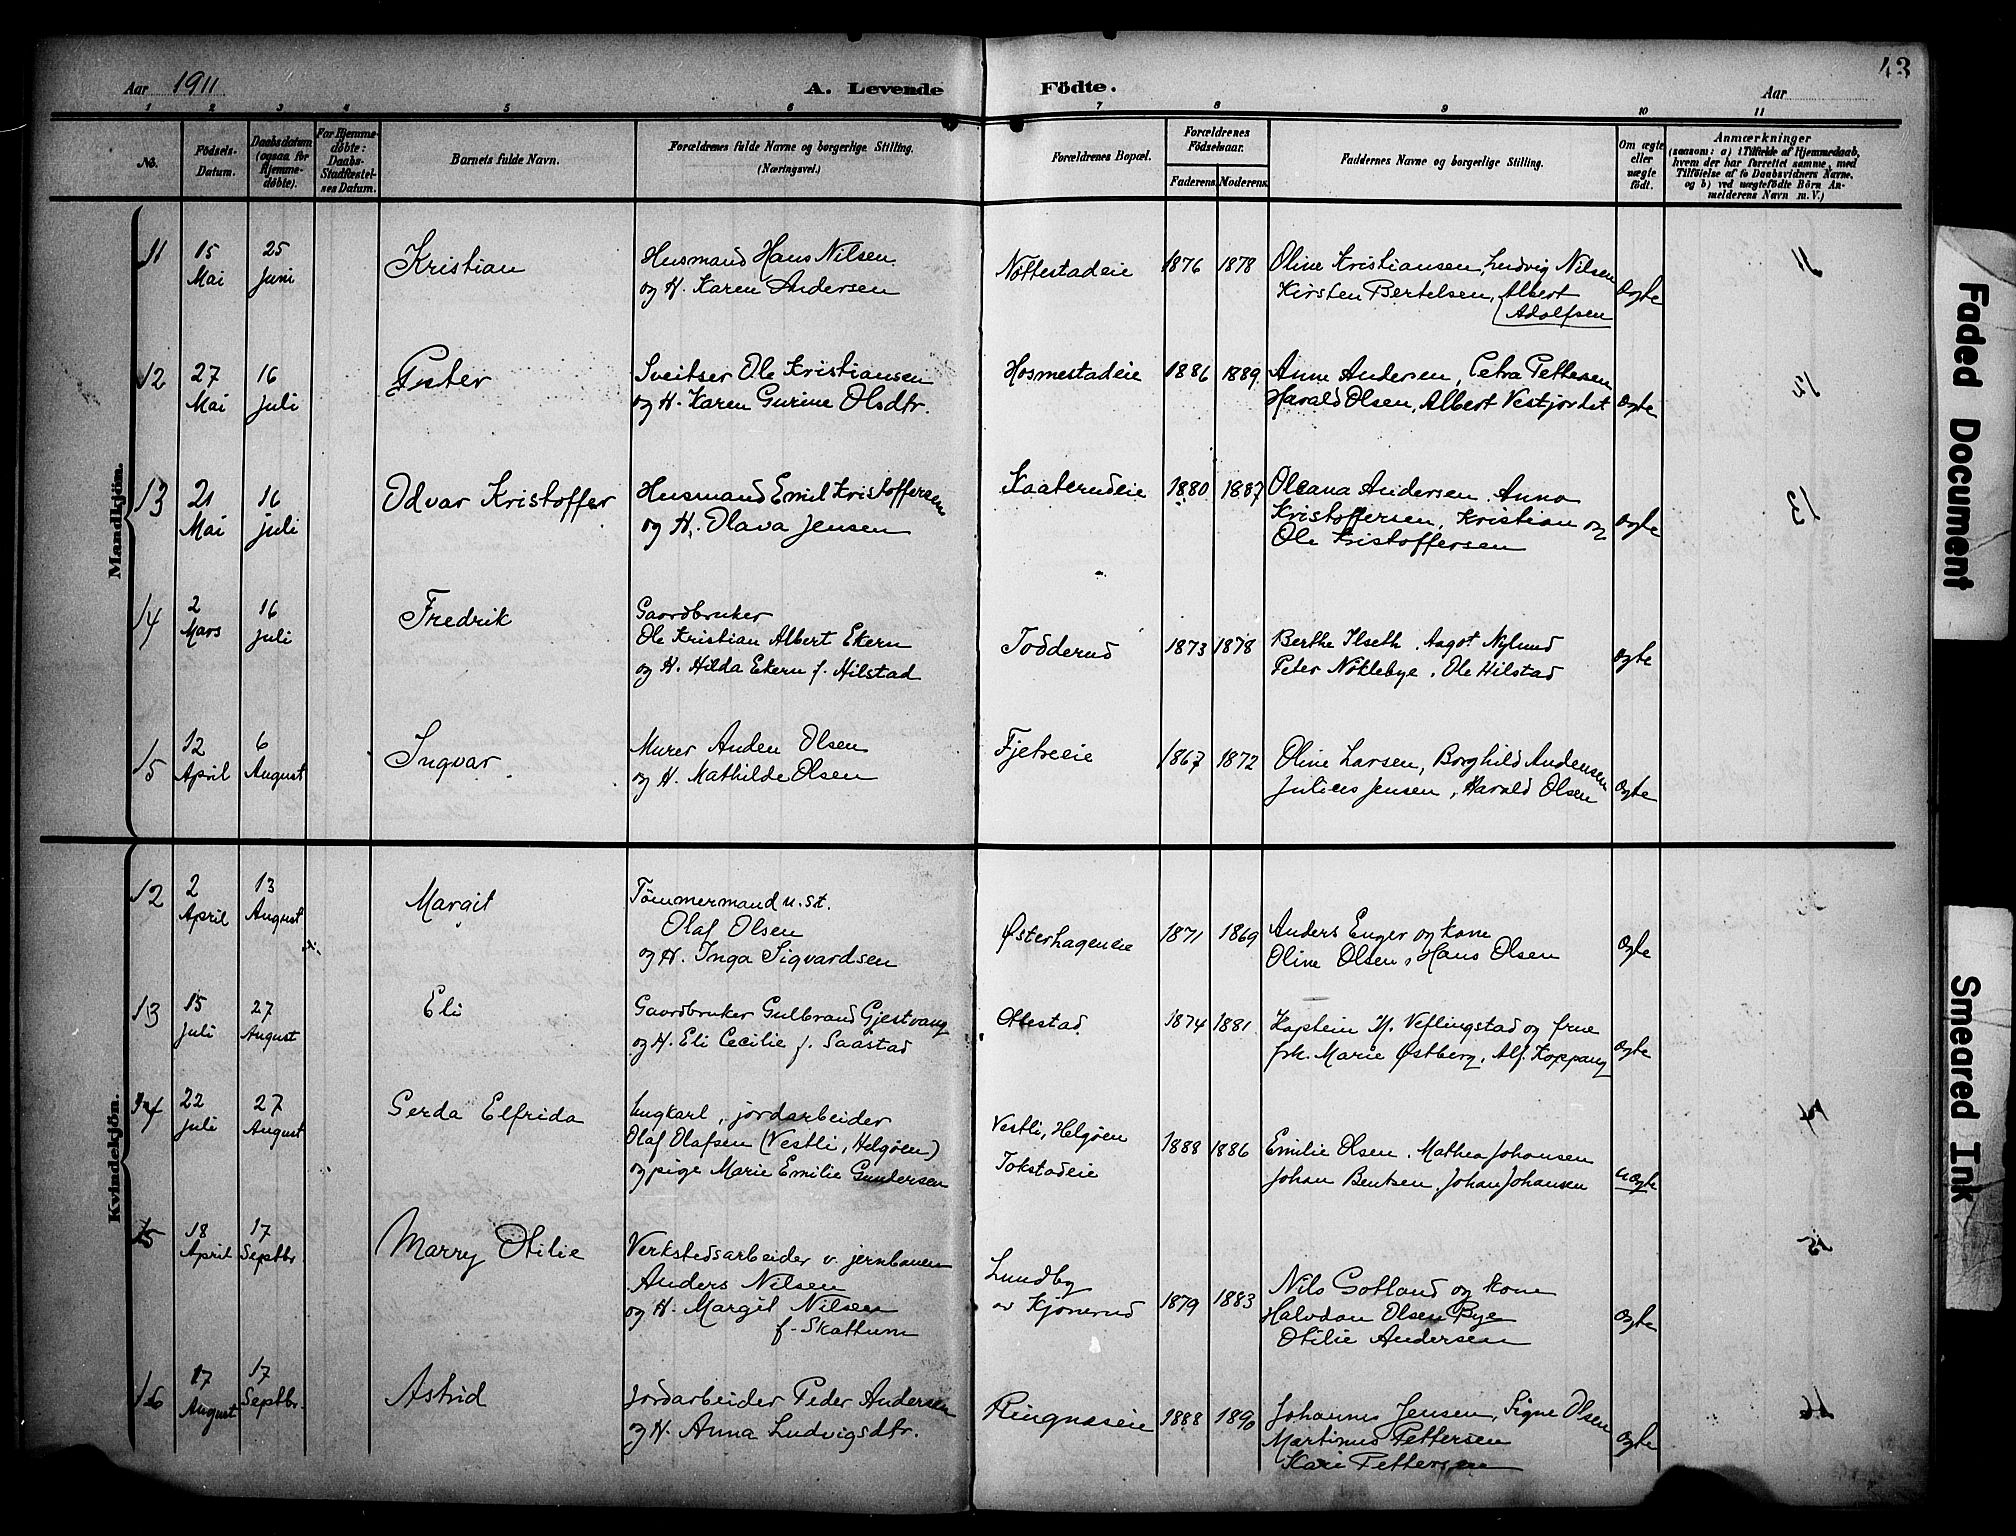 43
Aar 1911
A. Levende Födte.
Aar
1 2 3 4 5 6 7 8 9 10 11
No.
Födsels-
Datum.
Daabsdatum
(ogsaa for
Hjemme-
döbte).
For Hjemme-
döbte:
Daabs-
Stadfæstel-
ses Datum.
Barnets fulde Navn.
Forældrenes fulde Navne og borgerlige Stilling.
(Næringsvei.)
Forældrenes Bopæl.
Forældrenes
Födselsaar.
Faderens. Moderens.
Faddernes Navne og borgerlige Stilling.
Om ægte
eller
uægte
födt.
Anmærkninger
(saasom: a) i Tilfælde af Hjemmedaab,
hvem der har forrettet samme, med
Tilföielse af to Daabsvidners Navne,
og b) ved uægtefödte Börn An-
melderens Navn m. V.)
Mandkjön.
11
15
Mai
25
Juni
Kristian
Husmand Hans Nilsen
og H. Karen Andersen
Nøttestadeie
1876 1878
Oline Kristiansen, Ludvig Nilsen
Kirsten Bertelsen, Albert
Adolfsen
Ægte
12
27
Mai
16
juli
Peter
Sveitser Ole Kristiansen
og H. Karen Gurine Olsdtr.
Hosmestadeie
1886 1889
Anne Andersen, Petra Pettersen
Harald Olsen, Albert Vestjordet
Ægte
13
21
Mai
16
juli
Odvar Kristoffer
Husmand Emil Kristoffersen
og H. Olava Jensen
Kaaterudeie
1880 1887
Oleana Andersen, Anna
Kristoffersen, Kristian og
Ole Kristoffersen
Ægte
14
2
Mars
16
juli
Fredrik
Gaardbruker
Ole Kristian Albert Ekern
og H. Hilda Ekern f. Hilstad
Todderud
1873 1878
Berthe Ilseth, Aagot Nylund
Peter Nøklebye, Ole Hilstad
Ægte
15
12
April
6
August
Ingvar
Murer Anden Olsen
og H. Mathilde Olsen
Fjetreeie
1867 1872
Oline Larsen, Borghild Andensen
Julius Jensen, Harald Olsen
Ægte
Kvindekjön.
12
2
April
13
August
Margit
Tømmermand u. st.
Olaf Olsen
og H. Inga Sigvardsen
Østerhageneie
1871 1869
Anders Enger og kone
Oline Olsen, Hans Olsen
Ægte
13
15
juli
27
August
Eli
Gaardbruker Gulbrand Gjestvang
og H. Eli Cecilie f. Saastad
Ottestad
1874 1881
Kaptein M. Veflingstad og frue
frk. Marie Østberg, Alf. Koppang
Ægte
14
22
juli
27
August
Gerda Elfrida
Ungkarl, jordarbeider
Olaf Olafsen (Vestli, Helgøen)
og pige Marie Emilie Gundersen
Vestli, Helgøen
Tokstadeie
1888 1886
Emilie Olsen, Mathea Johansen
Johan Bentsen, Johan Johansen
Uægte
15
18
April
17
Septbr.
Marry Otilie
Verkstedsarbeider v. jernbanen
Anders Nilsen
og H. Margit Nilsen
f. Skattum
Lundby
av Kjonerud
1879 1883
Nils Gotland og kone
Halvdan Olsen Bye
Otilie Andersen
Ægte
16
17
August
17
Septbr.
Astrid
Jordarbeider Peder Andersen
og H. Anna Ludvigsdtr.
Ringnæseie
1888 1890
Johannes Jensen, Signe Olsen
Martinus Pettersen
Kari Pettersen
Ægte
Faded Document
Smeared Ink